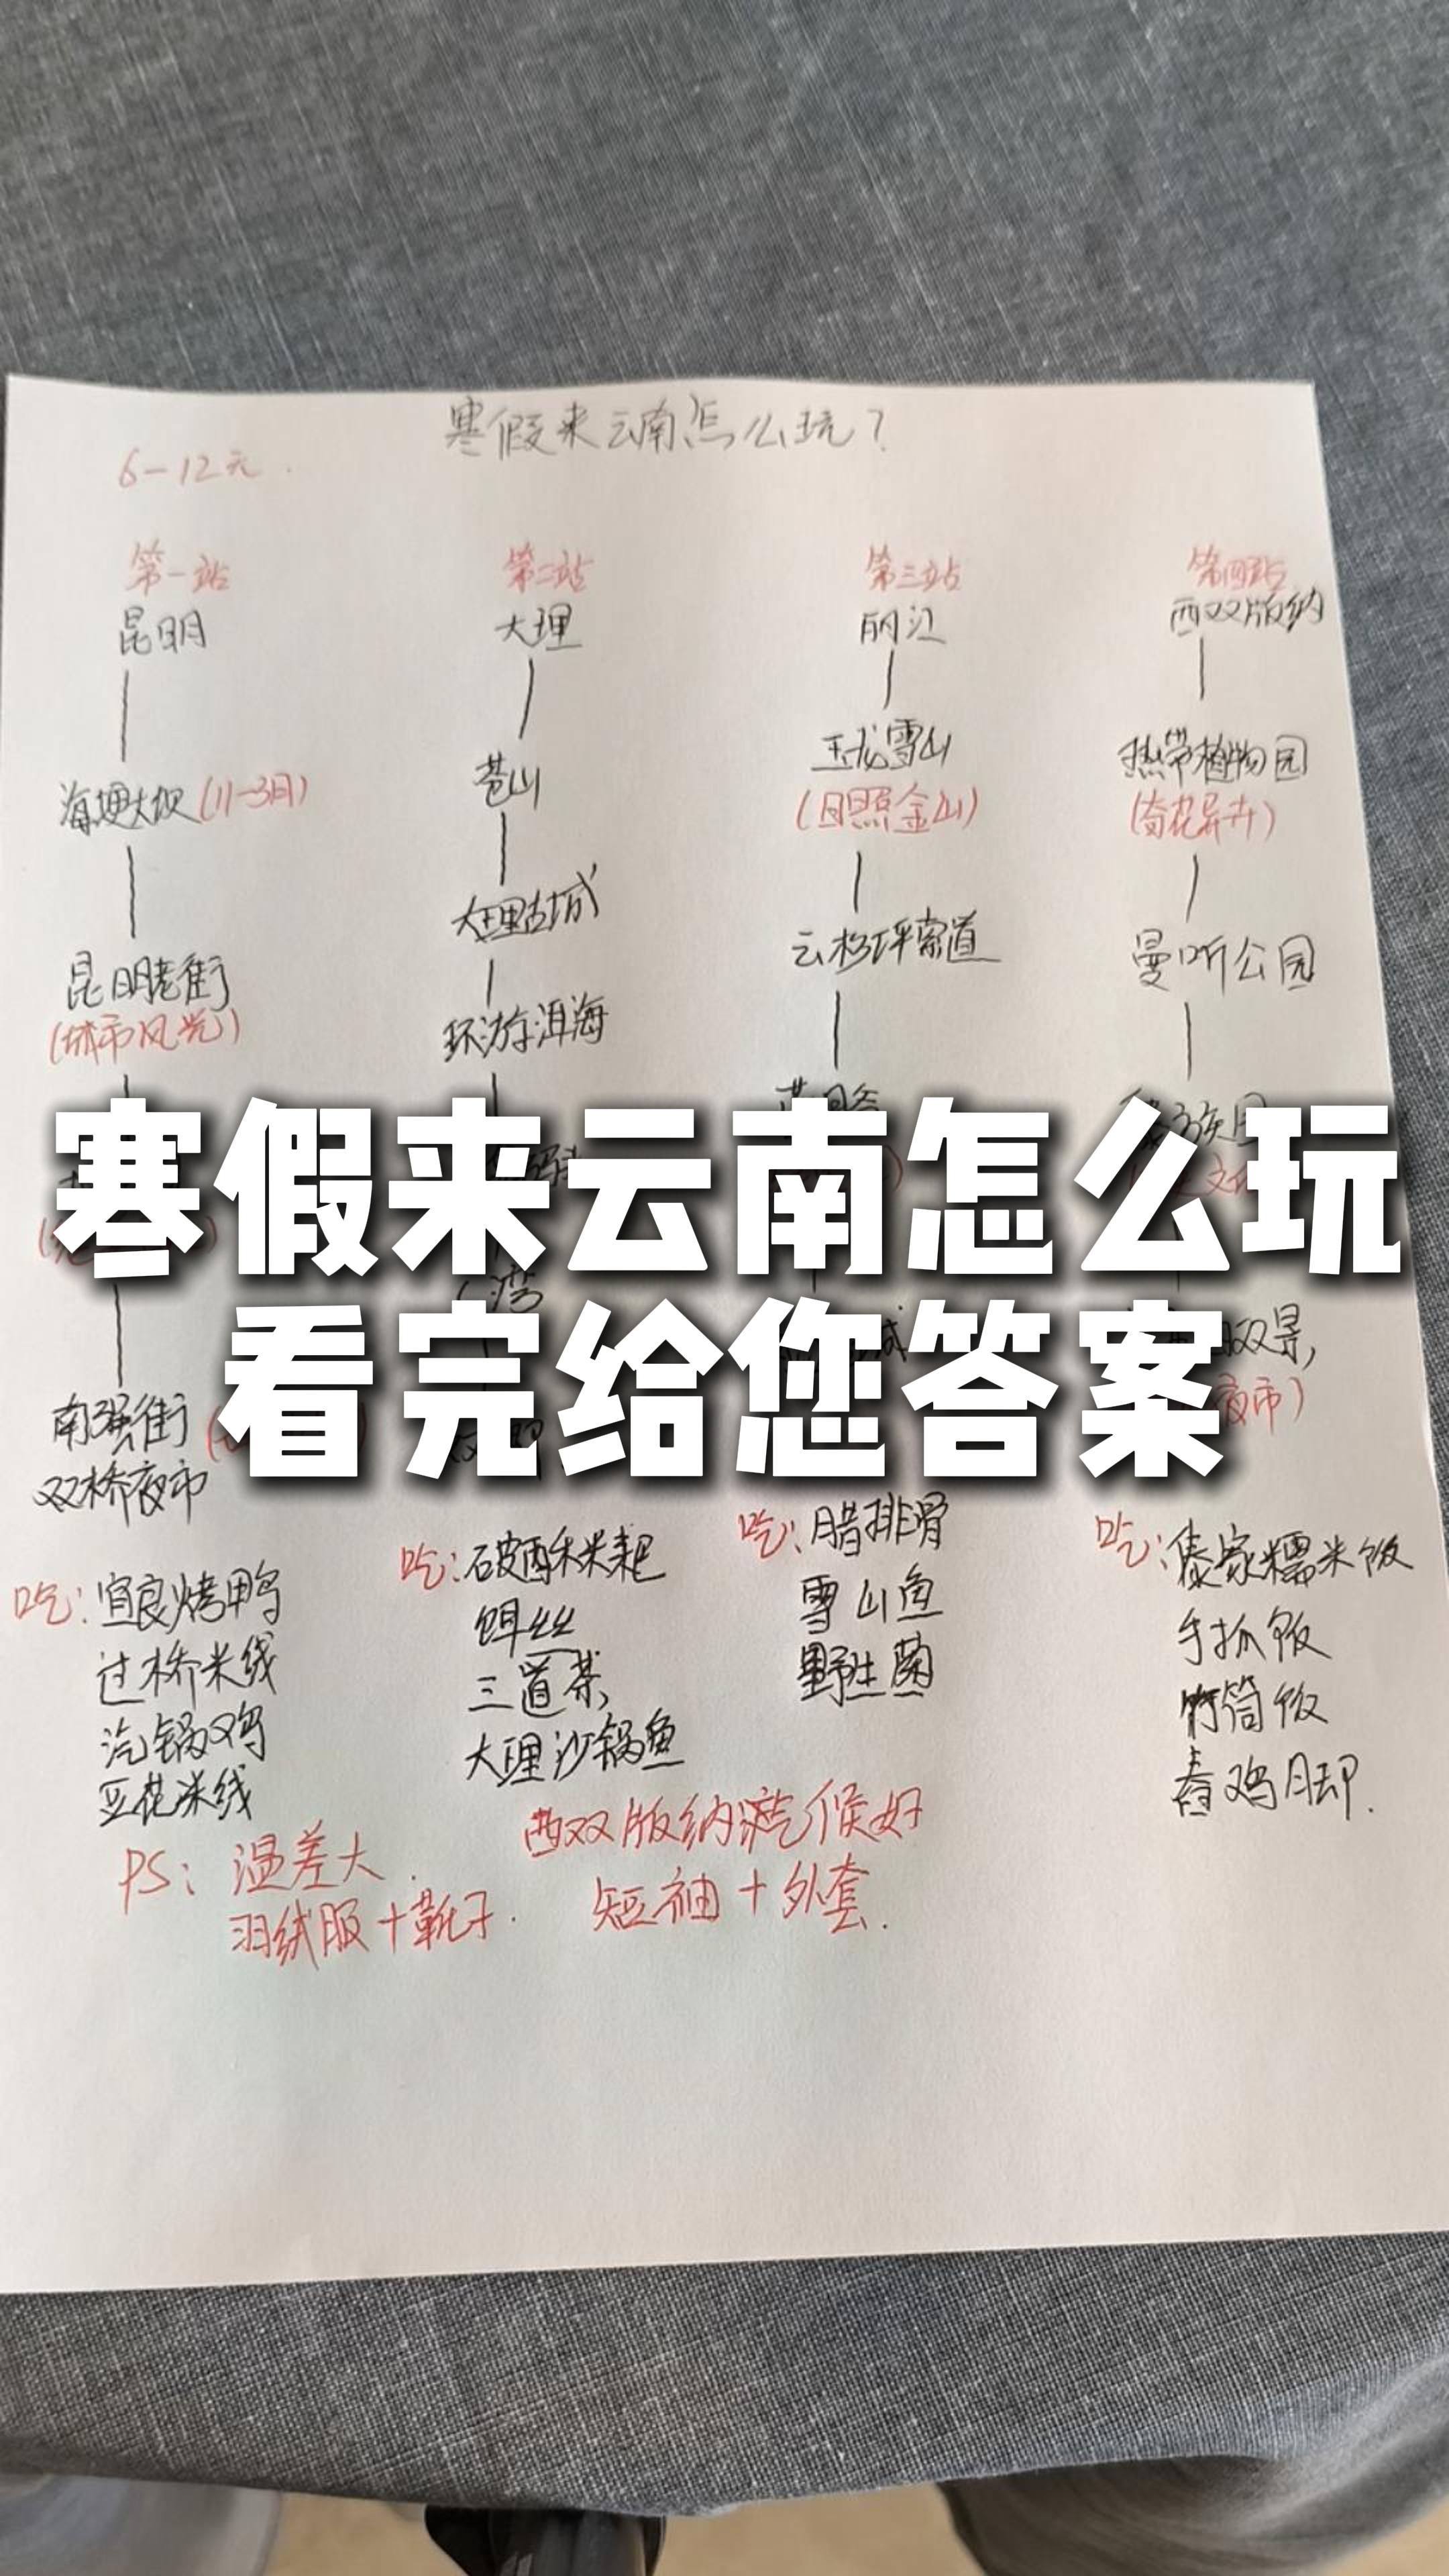 寒假来云南怎么玩?
6-12元.
第一站
昆明
海埂大坝(11-3月)
昆明老街
(城市风光)
南强街
双桥夜市
吃:宜良烤鸭
过桥米线
汽锅鸡
豆花米线
第二站
大理
苍山
大理古城
环游洱海
湾
吃:破酥米耙
饵丝
三道茶
大理沙锅鱼
第三站
丽江
玉龙雪山
(日照金山)
云杉坪索道
吃:腊排骨
雪山鱼
野生菌
第四站
西双版纳
热带植物园
(奇花异卉)
曼听公园
夜市)
吃:傣家糯米饭
手抓饭
竹筒饭
舂鸡脚.
寒假来云南怎么玩
看完给您答案
PS:温差大.
羽绒服+靴子.
西双版纳气候好
短袖+外套.